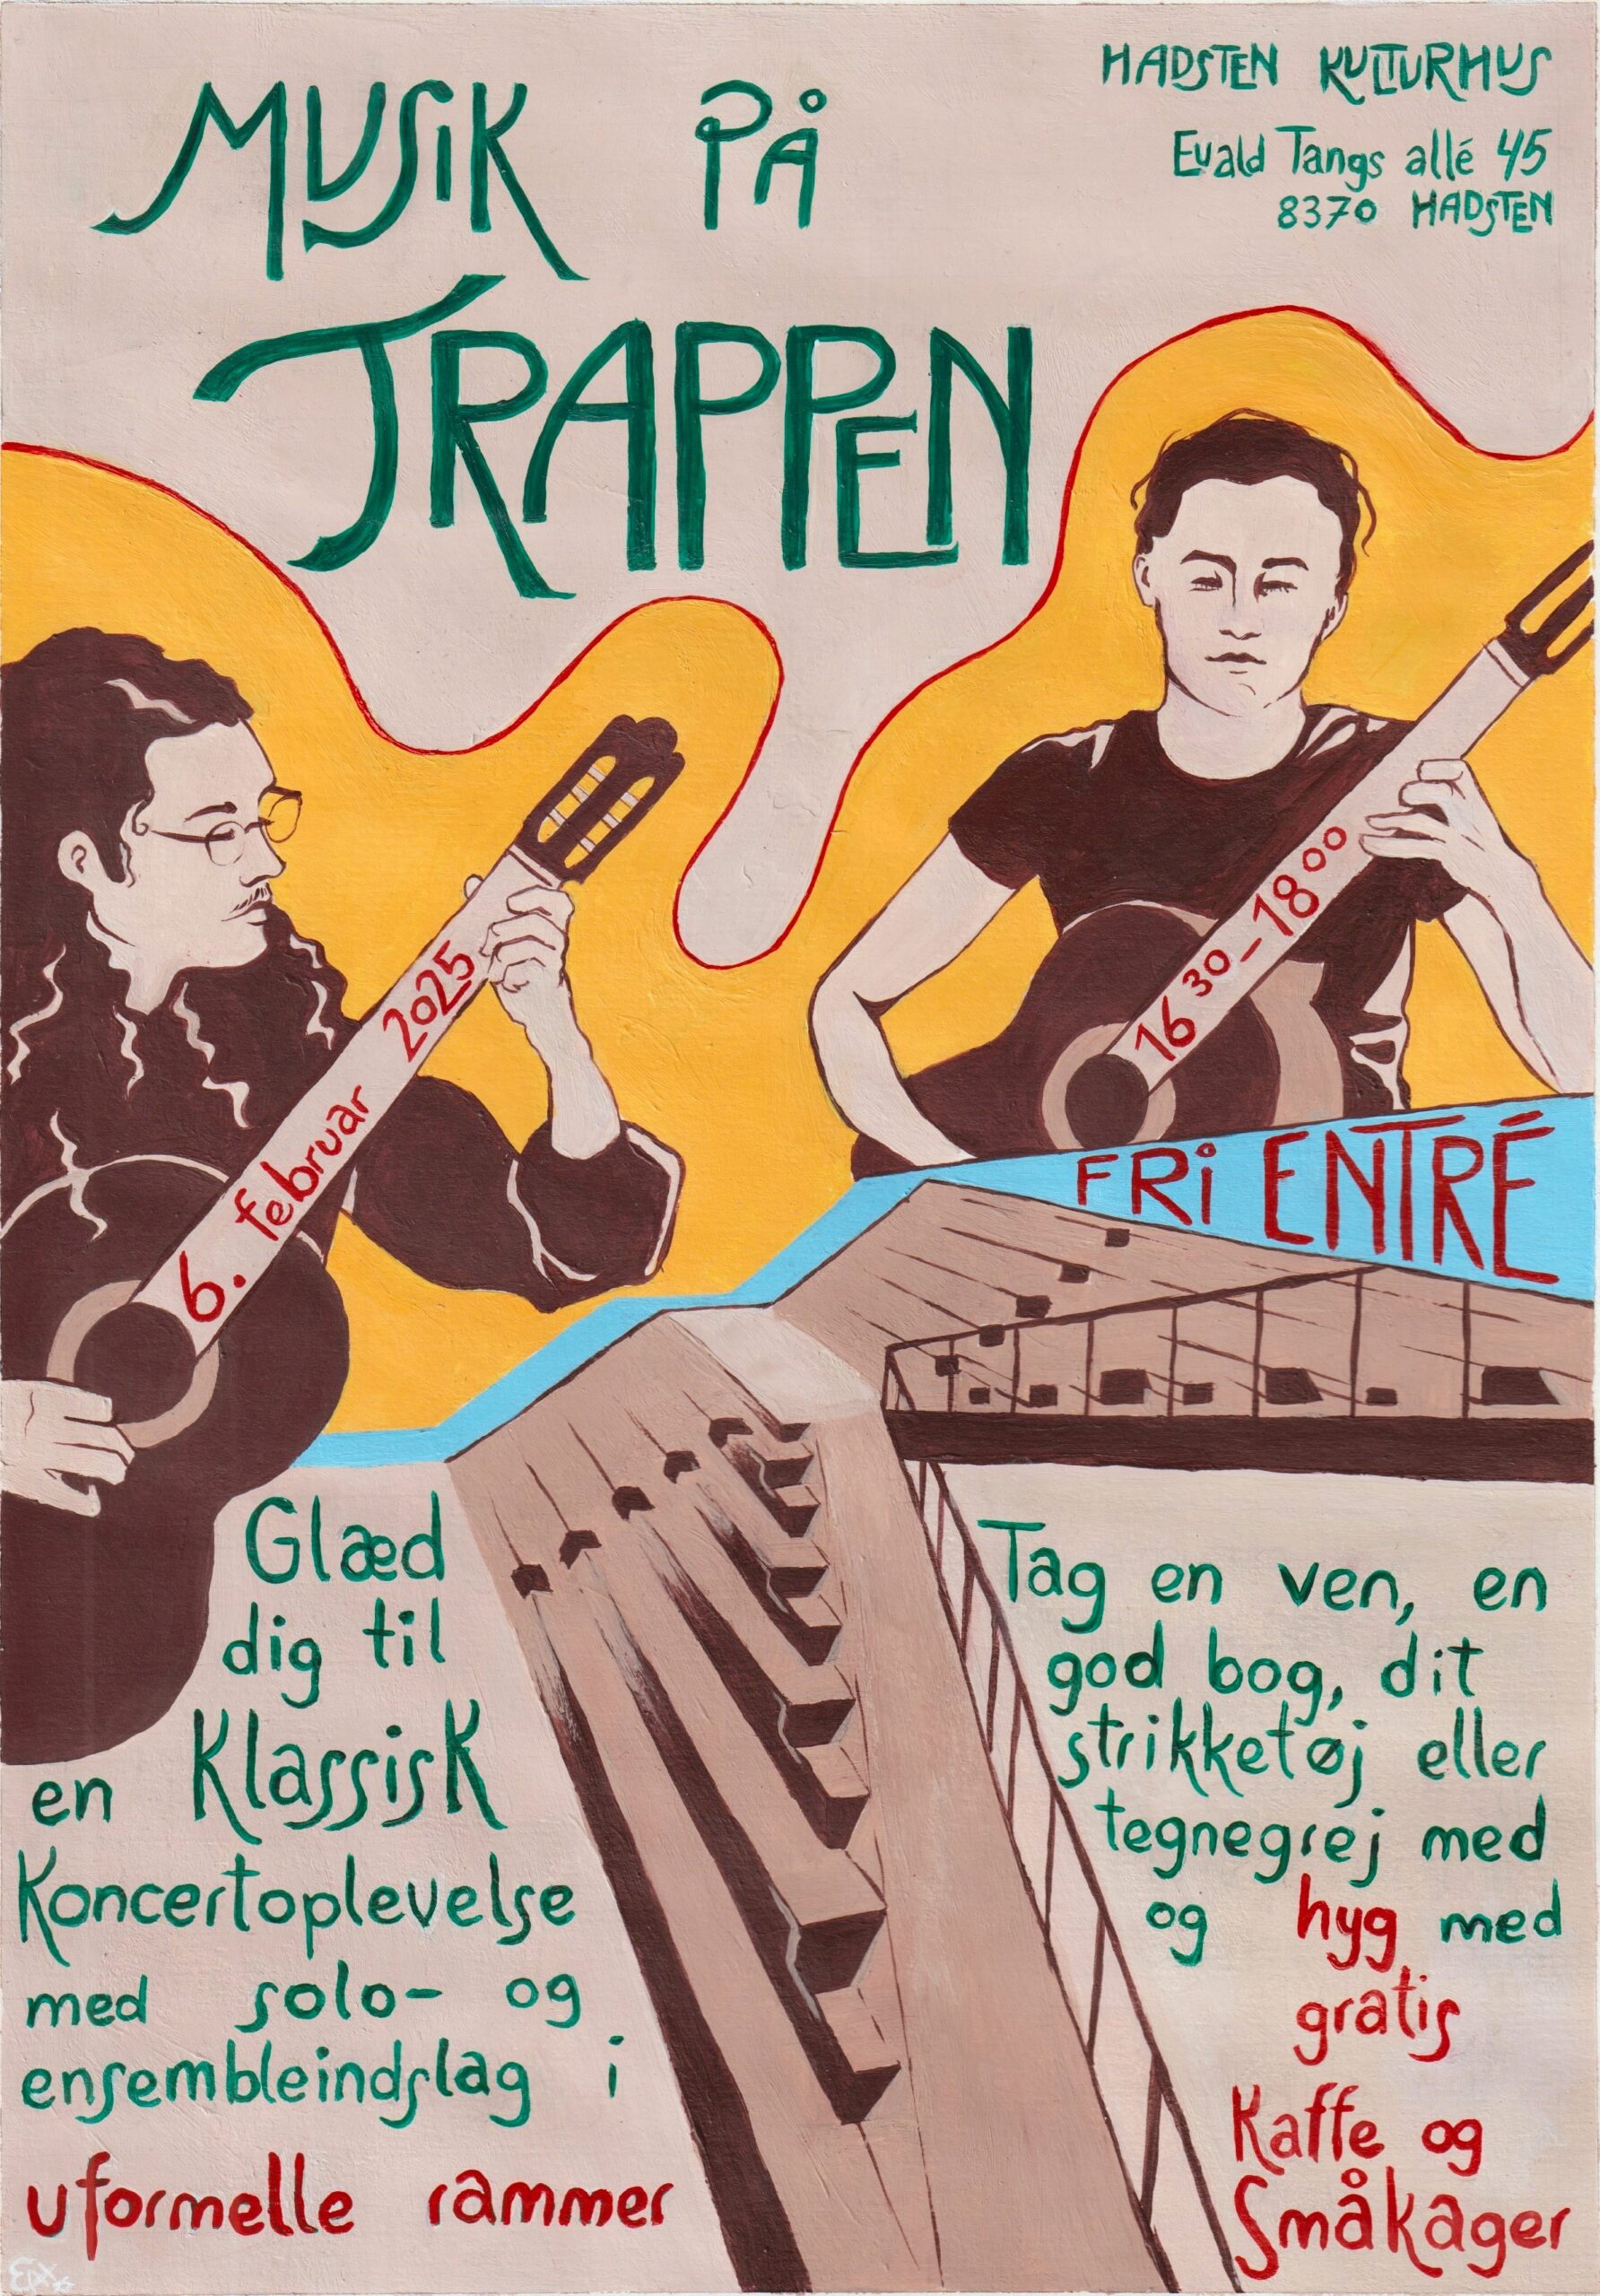 MUSiK PÅ
TRAPPEN
HADSTEN KULTURHUS
Evald Tangs allé 45
8370 HADSTEN
6. februar 2025
16 30 – 18 00
FRi ENTRÉ
Glæd
dig til
en Klassisk
Koncertoplevelse
med solo- og
ensembleindslag i
uformelle rammer
Tag en ven, en
god bog, dit
strikketøj eller
tegnegrej med
og hyg med
gratis
Kaffe og
Småkager